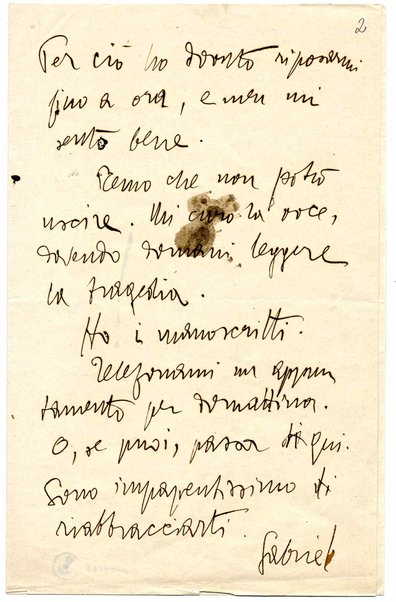 2
Per ciò ho dovuto riposarmi
fino a ora, e non mi
sento bene.
Temo che non potrò
uscire. Mi curo la voce,
dovendo domani leggere
la tragedia.
Ho i manoscritti.
Telefonami un appun
tamento per domattina.
O, se puoi, passa di qui.
Sono impazientissimo di
riabbracciarti.
Gabriel